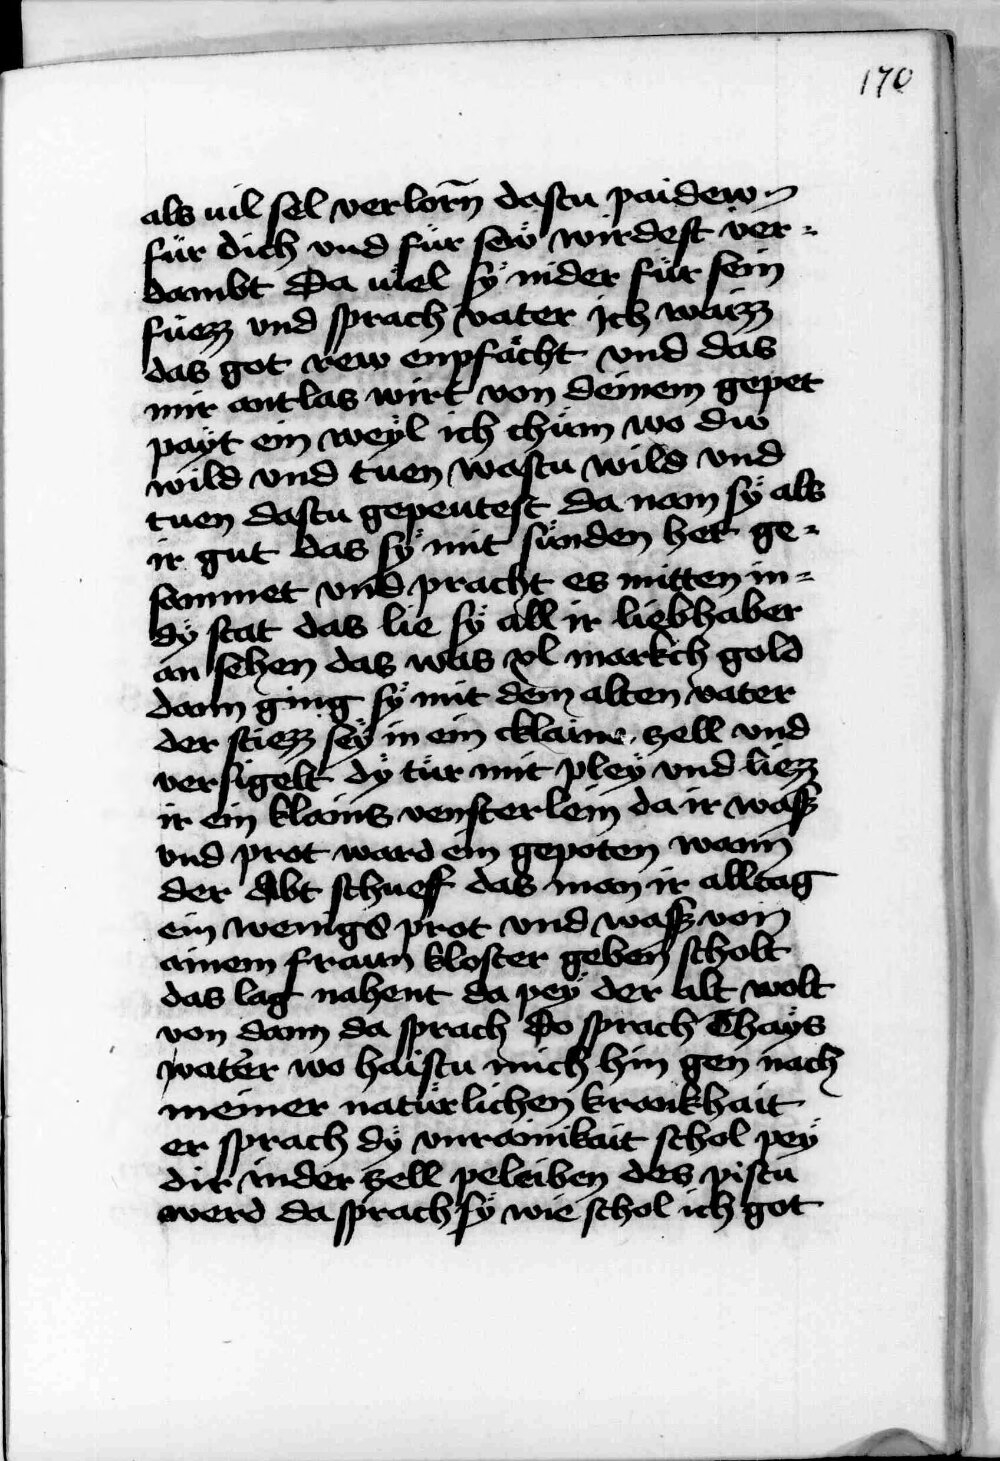 170
als uil sel verlorn̄ dastu paidew
für dich vnd für seÿ wirdest ver-
dambt Da uiel sÿ nider für sein
füezz vnd sprach vater ich waizz
das got rew enpfächt vnd das
mir antlas wirt von deinem gepet
paÿt ein weÿl ich chüm wo dw
wild vnd tuen wastu wild vnd
tuen dastu gepeutest da nam sÿ als
ir gut das sÿ mit sünden het ge-
sammet vnd pracht es mitten in-
dÿ stat das lie sÿ all ir liebhaber
an sehen das was xl markch gold
dann ging sÿ mit dem alten vater
der stiezz seÿ in ein cklaine zell vnd
versigelt dÿ tür mit pleÿ vnd liezz
ir ein klains vensterlein da ir wass̄
vnd prot ward ein gepoten wann
der Abt schueff das man ir alltag
ein wenigs prot vnd wass̄ von
ainem fraun kloster geben scholt
das lag nahent da peÿ der alt wolt
von dann da sprach Do sprach Thaÿs
vater wo haistu mich hin gen nach
meiner natürlichen krankhait
er sprach dÿ vnrainikait schol peÿ
dir in der zell peleiben des pistu
werd da sprach sÿ wie schol ich got